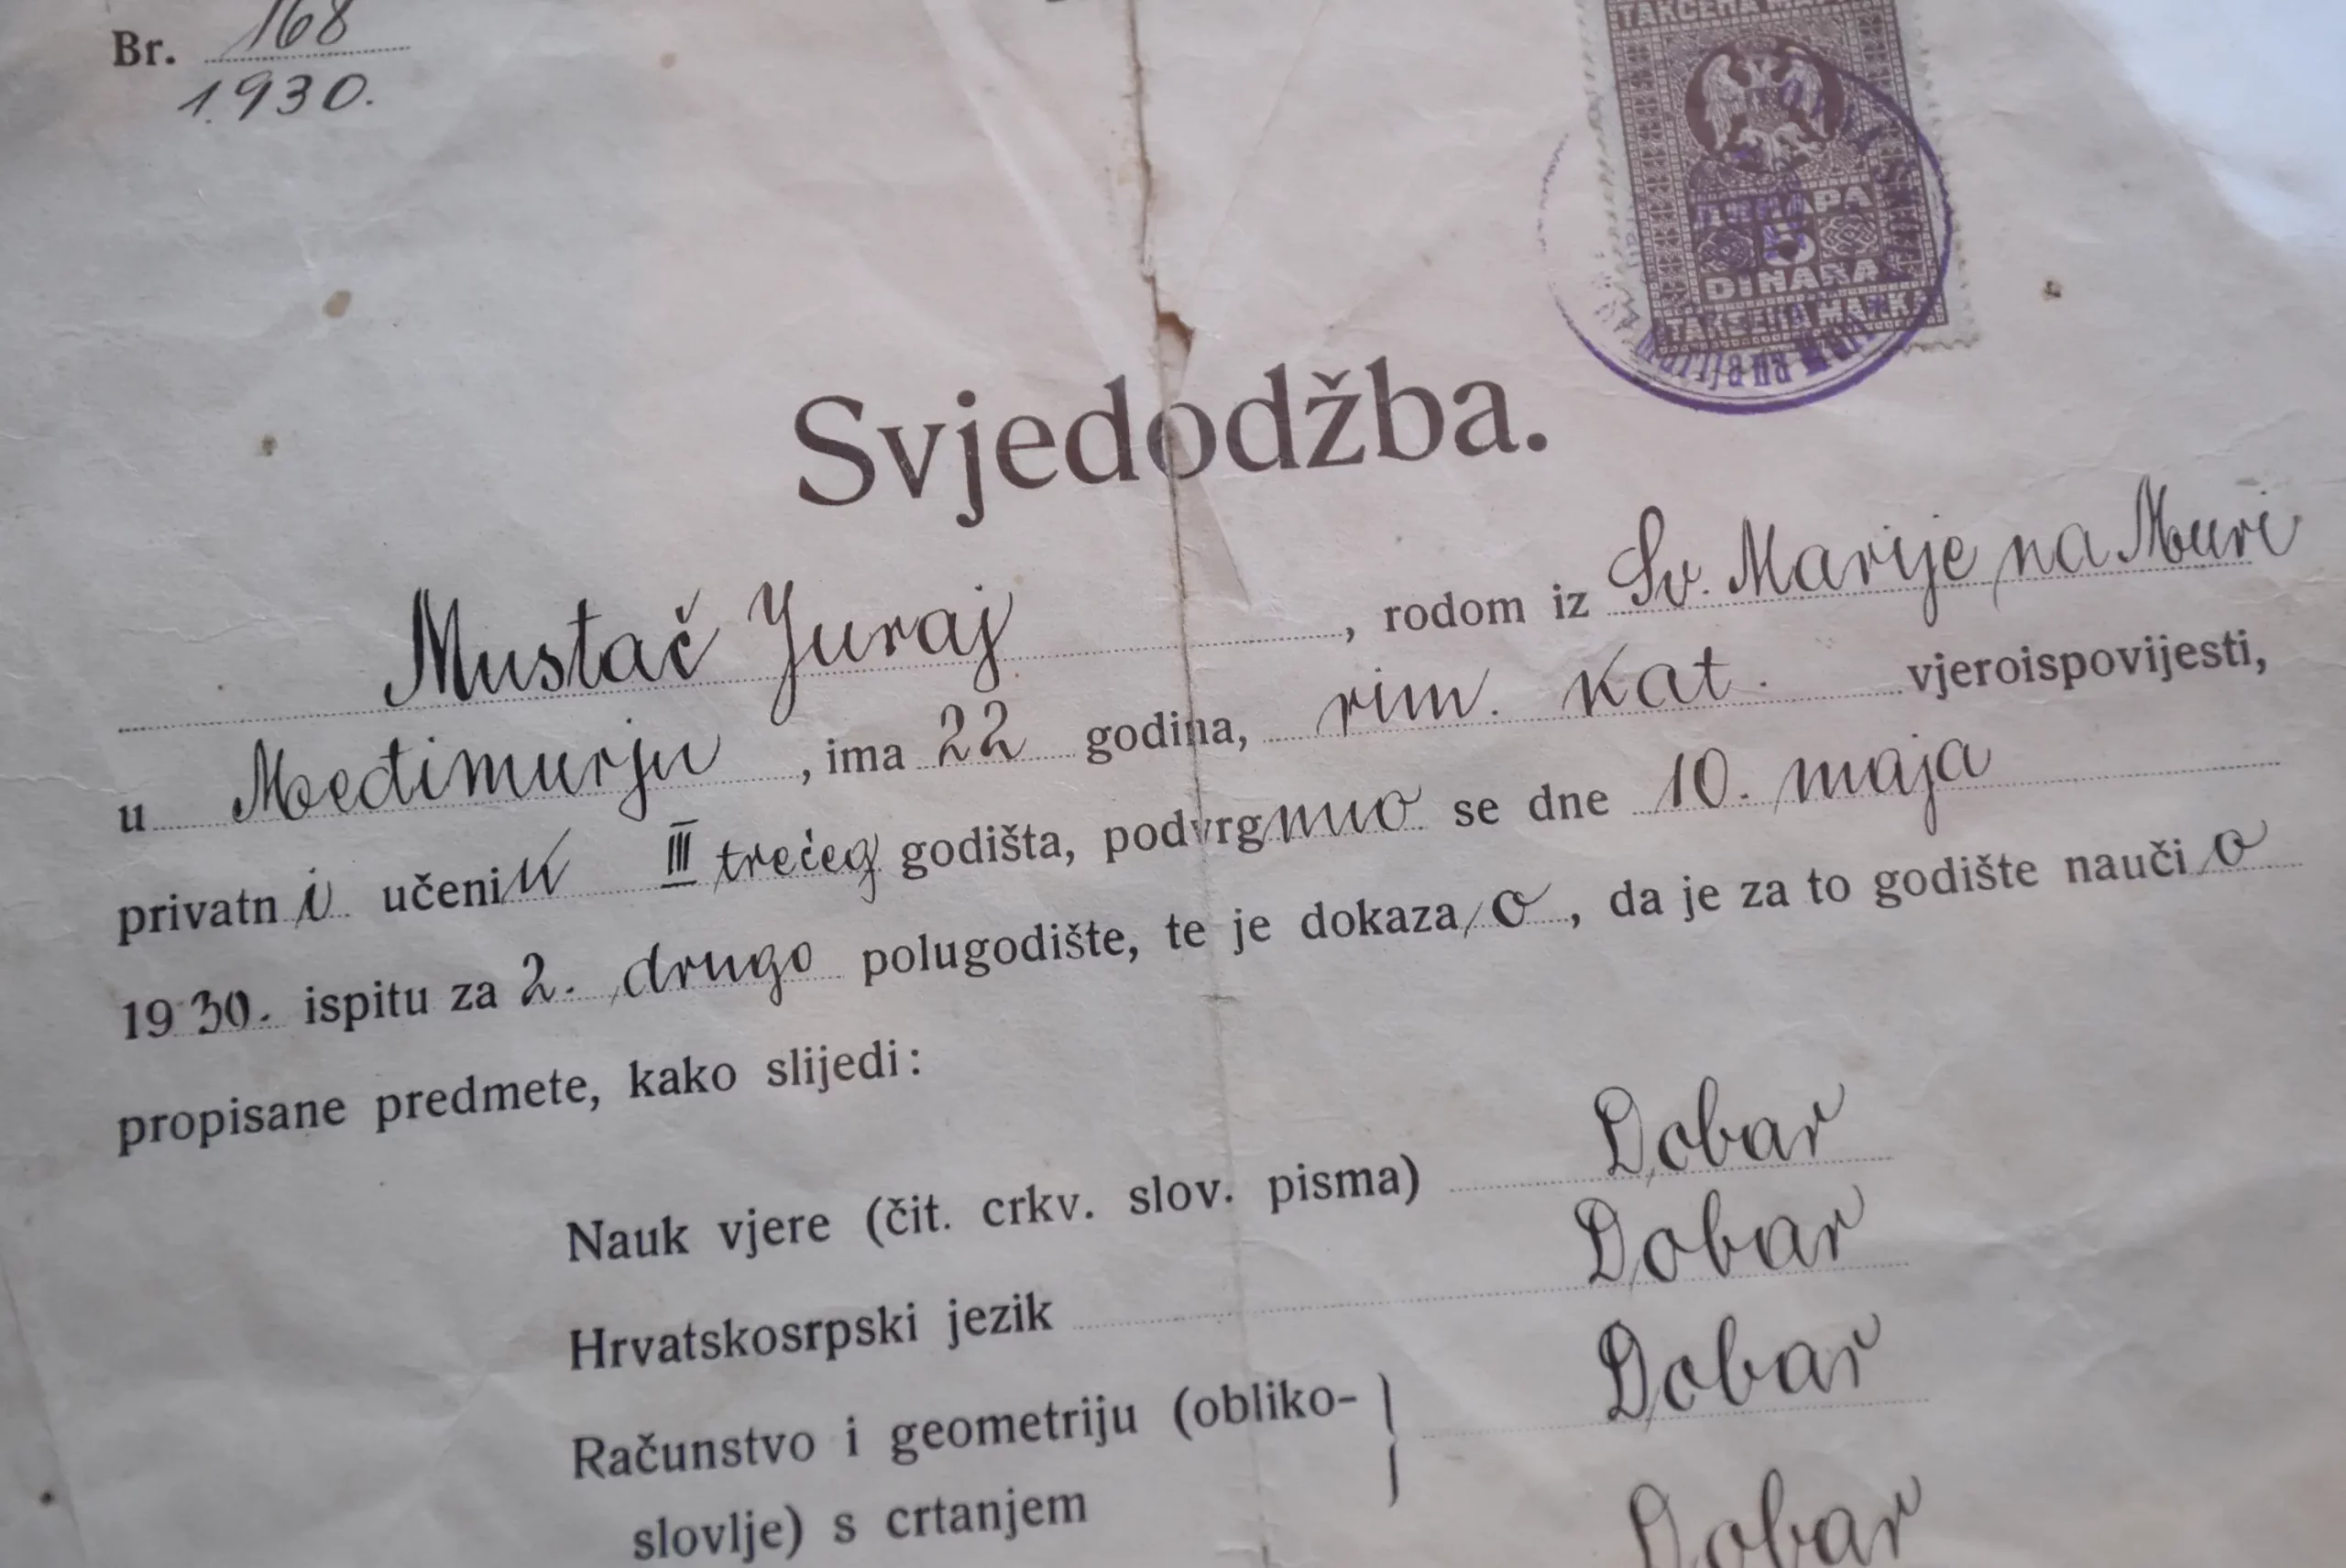 Br. 168
1930.
TAKSENA
DINARA
5
DINARA
TAKSENA MARKA
Svjedodžba.
Mustač Juraj, rodom iz Sv. Marije na Muri
u Međimurju, ima 22 godina, rim. kat. vjeroispovijesti,
privatni učenik III trećeg godišta, podvrgnuo se dne 10. maja
1930. ispitu za 2. drugo polugodište, te je dokazao, da je za to godište naučio
propisane predmete, kako slijedi:
Nauk vjere (čit. crkv. slov. pisma) Dobar
Hrvatskosrpski jezik Dobar
Računstvo i geometriju (obliko- } Dobar
slovlje) s crtanjem
Dobar